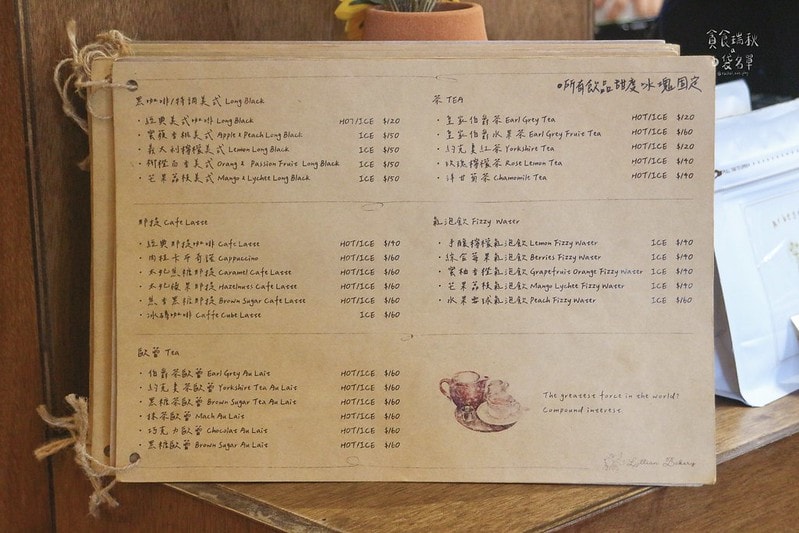 貪食瑞秋
a
袋名單
•所有飲品甜度冰塊固定
黑咖啡/特調美式 Long Black
• 經典美式咖啡 Long Black HOT/ICE $120
• 蜜蘋香桃美式 Apple & Peach Long Black ICE $150
• 義大利檸檬美式 Lemon Long Black ICE $150
• 柳橙百香美式 Orang & Passion Fruit Long Black ICE $150
• 芒果荔枝美式 Mango & Lychee Long Black ICE $150
那提 Cafe Latte
• 經典那提咖啡 Cafe Latte HOT/ICE $140
• 肉桂卡布奇諾 Cappuccino HOT/ICE $160
• 太妃焦糖那提 Caramel Cafe Latte HOT/ICE $160
• 太妃榛果那提 Hazelnuts Cafe Latte HOT/ICE $160
• 焦香黑糖那提 Brown Sugar Cafe Latte HOT/ICE $160
• 冰磚咖啡 Caffe Cube Latte ICE $160
歐蕾 Tea
• 伯爵茶歐蕾 Earl Grey Au Lait HOT/ICE $160
• 約克夏茶歐蕾 Yorkshire Tea Au Lait HOT/ICE $160
• 黑糖茶歐蕾 Brown Sugar Tea Au Lait HOT/ICE $160
• 抹茶歐蕾 Mach Au Lait HOT/ICE $160
• 巧克力歐蕾 Chocolat Au Lait HOT/ICE $160
• 黑糖歐蕾 Brown Sugar Au Lait HOT/ICE $160
茶 TEA
• 皇家伯爵茶 Earl Grey Tea HOT/ICE $120
• 皇家伯爵水果茶 Earl Grey Fruit Tea HOT/ICE $160
• 約克夏紅茶 Yorkshire Tea HOT/ICE $120
• 玫瑰檸檬茶 Rose Lemon Tea HOT/ICE $140
• 洋甘菊茶 Chamomile Tea HOT/ICE $140
氣泡飲 Fizzy Water
• 手釀檸檬氣泡飲 Lemon Fizzy Water ICE $140
• 綜合莓果氣泡飲 Berries Fizzy Water ICE $140
• 蜜柚香橙氣泡飲 Grapefruit Orange Fizzy Water ICE $140
• 芒果荔枝氣泡飲 Mango Lychee Fizzy Water ICE $140
• 水果雪球氣泡飲 Peach Fizzy Water ICE $160
The greatest force in the world?
Compound interest
Lillian Bakery